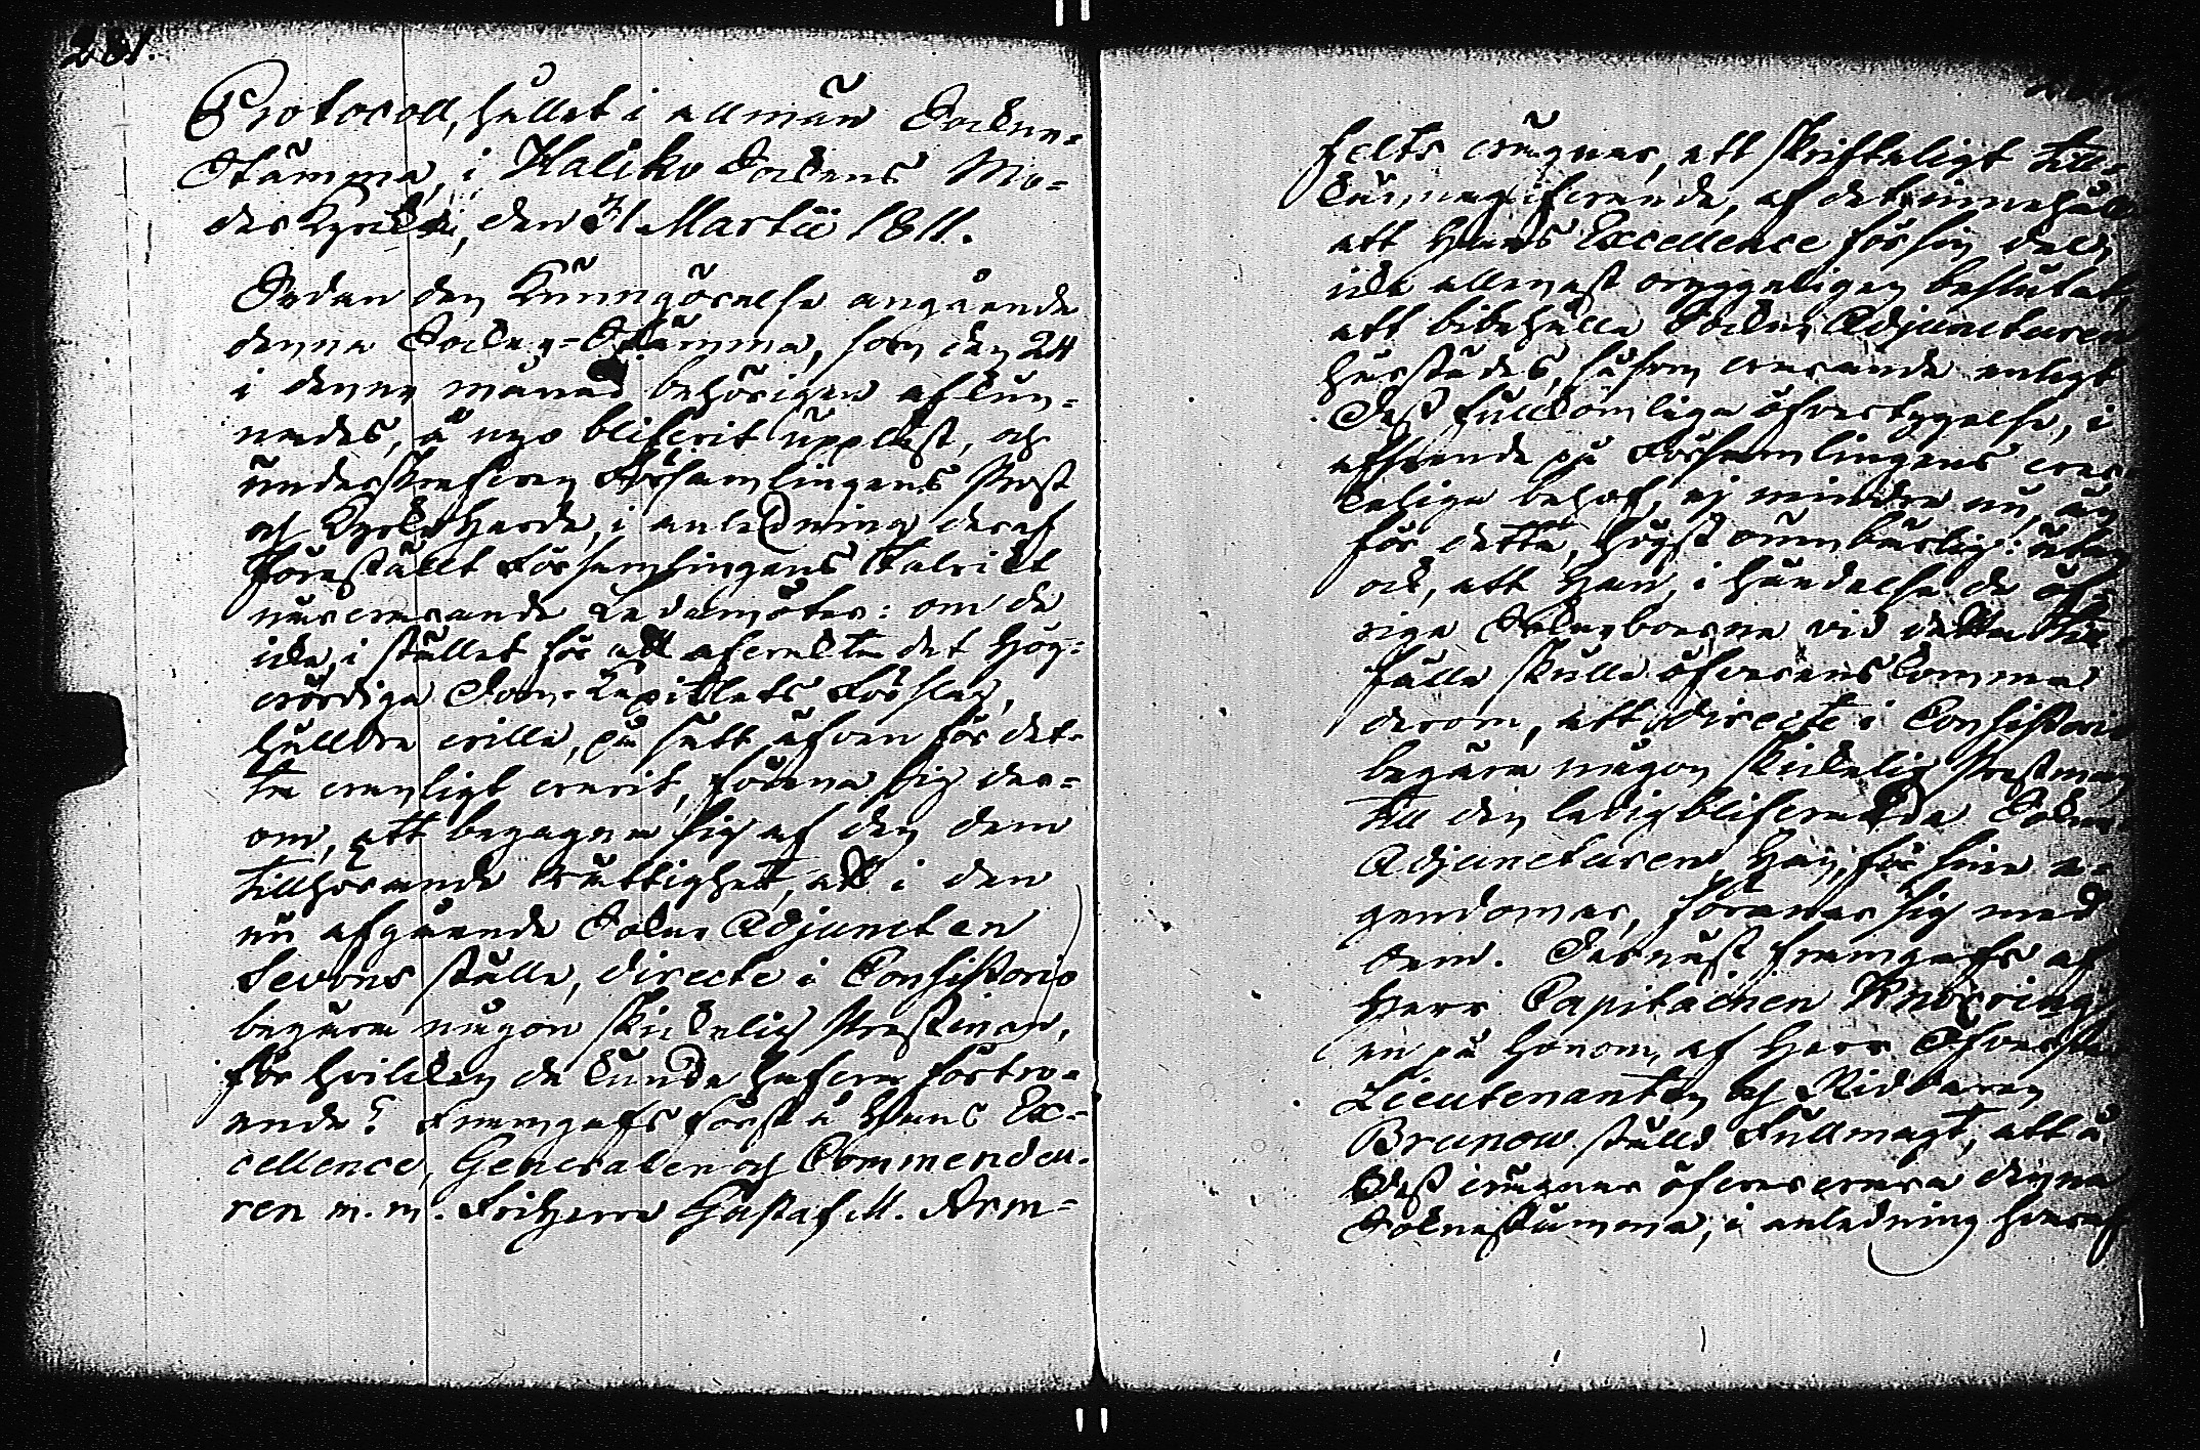 281.
Protocoll, hållet i allmän Sockne-
Stämma, i Haliko Sockens Mo-
derkyrka, den 31 Martii 1811.
Sedan den Kungörelse angående
denna Sockne-Stämma, som den 24
i denna månad behörigen afkun-
nades, å nyo blifvit uppläst, och
underskrefven Församlingens Prost
och Kyrkoherde, i anledning deraf
föreställt Församlingens talrikt
närvarande Ledamöter: om de
icke, i stället för att afvackta det Hög-
vördiga Dom-Kapitlets Förslag,
hälldre ville, på sätt äfven för det-
ta vanligt varit, förena sig der-
om, att begagna sig af den dem
tillhörande rättighet, att i den
nu afgående Sockne Adjuncten
Sevons ställe, directe i Consistorio
begära någon skickelig Prestman,
för hvilken de kunde hafva förtro-
ende? Framgafs först å Hans Ex-
cellence, Generalen och Commendeu-
ren m. m. Friherre Gustaf M. Arm-
felts vägnar, ett skrifteligt till-
kännagifvande, af det innehåll
att Hans Excellence för sin del,
icke allenast oryggeligen beslutat,
att bibehålla Sockne Adjuncturen
härstädes, såsom varande enligt
Dess fullkomliga öfvertygelse, i
afseende på Församlingens verk-
keliga behof, ej mindre nu, än
för detta, högst oumbärlig: utan
ock, att Han, i händelse de öf-
riga Sockneboerne vid detta till-
fälle skulle öfverenskomma
derom, att directe i Consistorio
begära någon skickelig Prestman
till den ledigblifvande Sockne
Adjuncturen, Han, för sina e-
gendomar, förenar sig med
dem. Dernäst framgafs af
Herr Capitainen Knorring
en på honom, af Herr Öfverste
Lieutenanten och Riddaren
Brunow ställd Fullmagt, att å
Dess vägnar öfvervara denna
Socknestämma, i anledning hvaraf